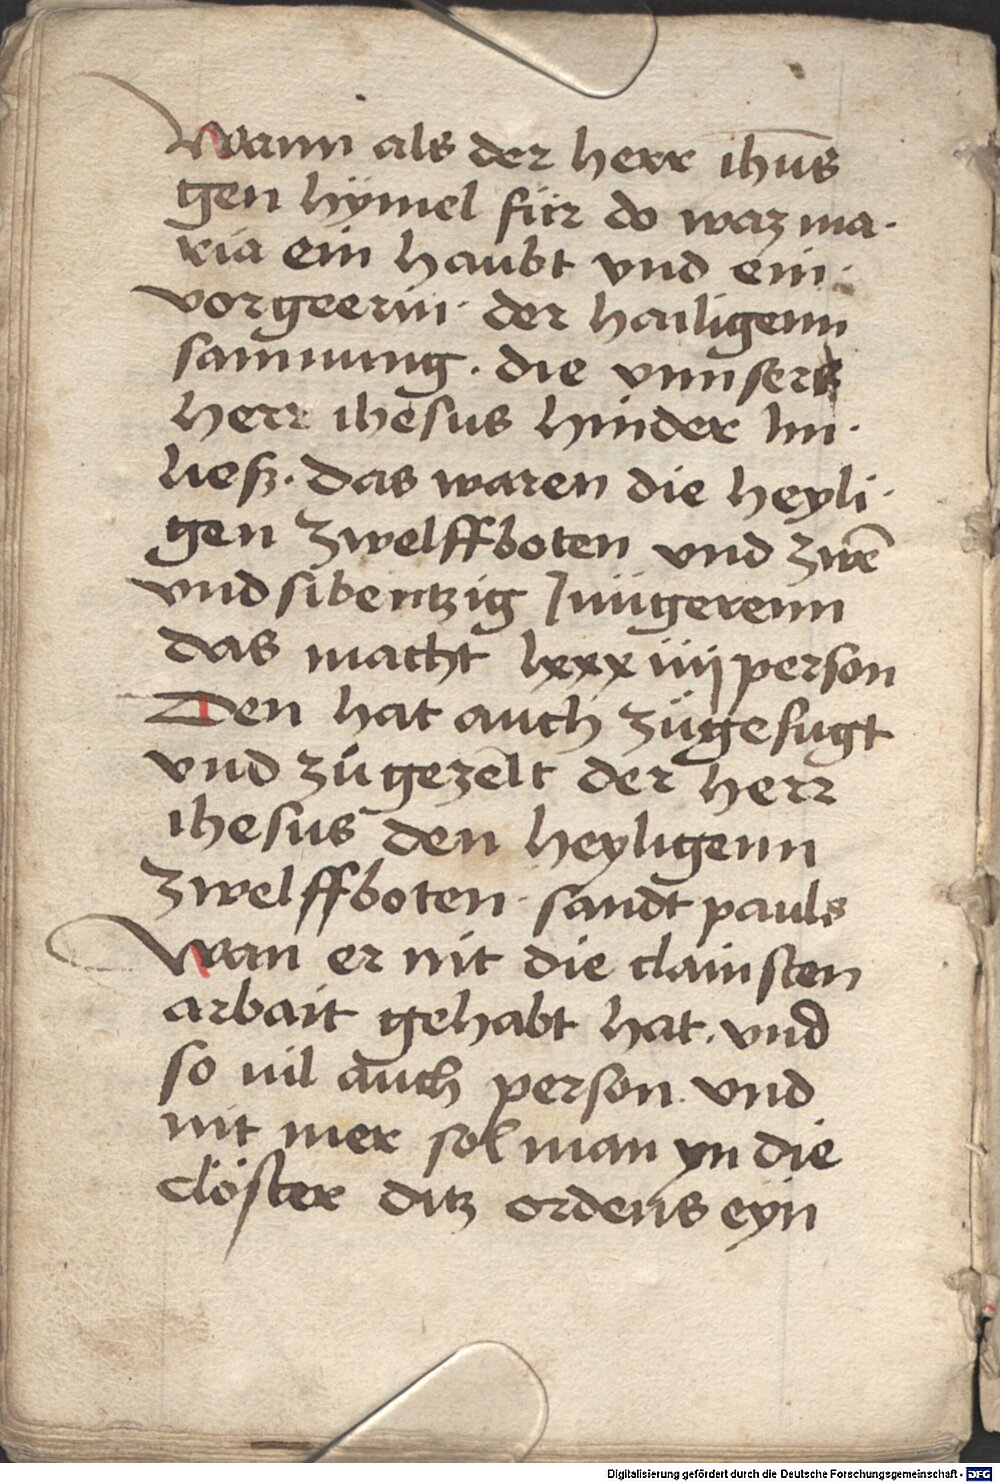 Wann als der herr ihūs
gen hÿmel für do waz ma-
ria ein haubt vnd ein
vorgeerin· der hailigenn
samnung · die vnnsers
herr ihesus hinder im·
liesz · das waren die heyli-
gen zwelffboten vnd zwē
vnd sibentzig Jungerenn
das macht lxxxiiij person
Den hat auch zügefugt
vnd zügezelt der herr
ihesus den heyligenn
zwelffboten · sandt pauls
Wan er nit die clainsten
arbait gehabt hat · vnd
so uil auch person vnd
nit mer sol man yn die
clöster ditz ordens eyn
Digitalisierung gefördert durch die Deutsche Forschungsgemeinschaft - DFG